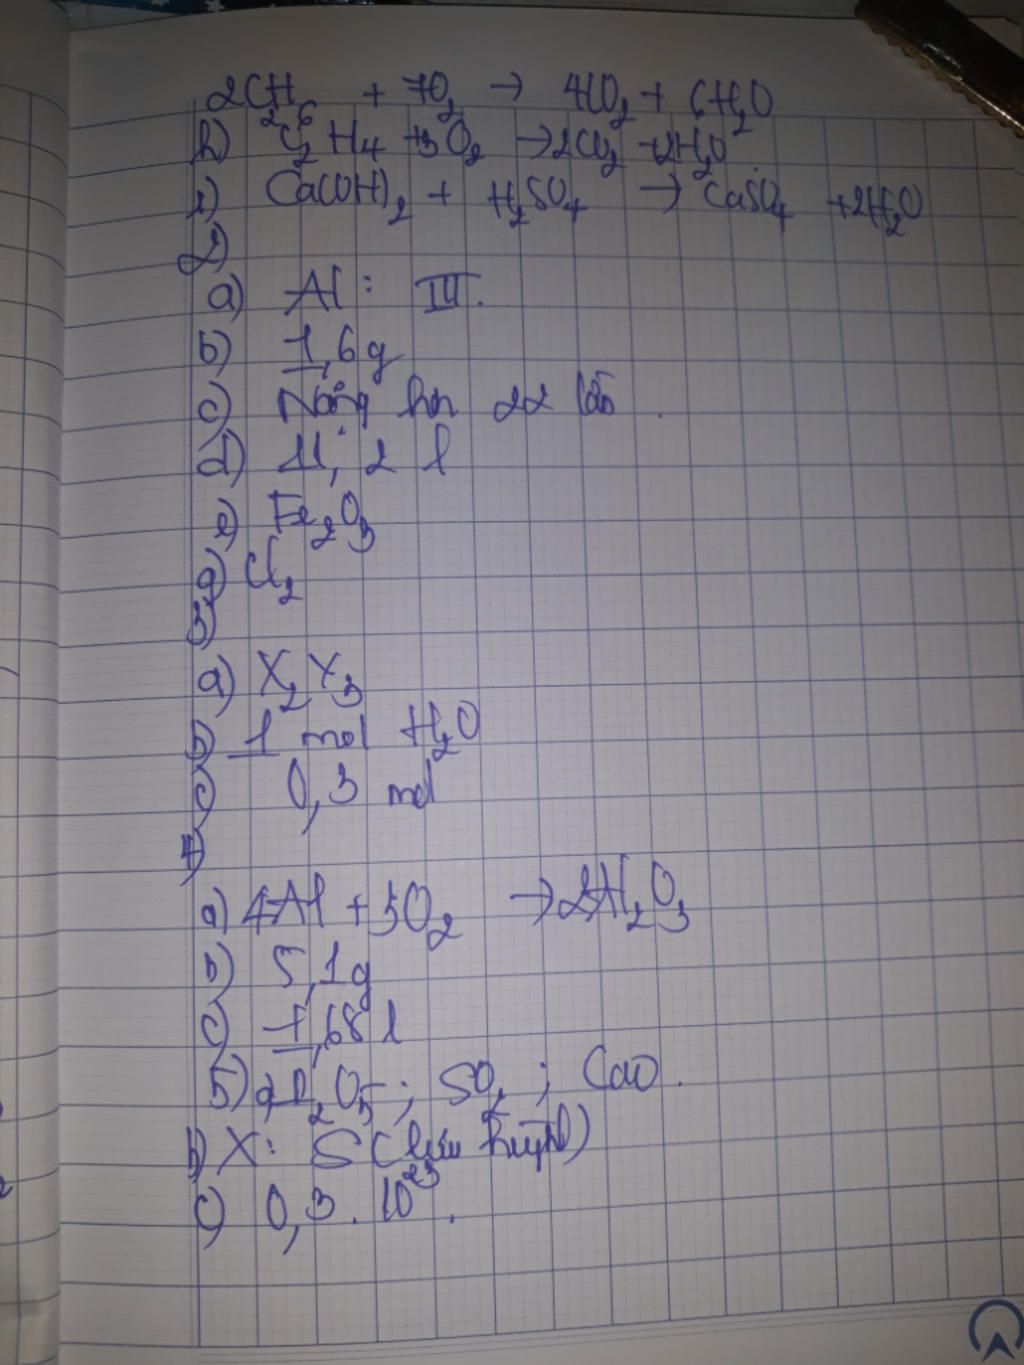 2C₂H₆ + 7O₂ → 4CO₂ + 6H₂O
h) C₂H₄ + 3O₂ → 2CO₂ + 2H₂O
i) Ca(OH)₂ + H₂SO₄ → CaSO₄ + 2H₂O
2)
a) Al : III.
b) 1,6g
c) Nặng hơn 22 lần.
d) 11,2 l
e) Fe₂O₃
g) Cl₂
3)
a) X₂Y₃
b) 1 mol H₂O
c) 0,3 mol
4)
a) 4Al + 3O₂ → 2Al₂O₃
b) 5,1g
c) 1,68 l
5) a, P₂O₅ ; SO₂ ; CaO.
b) X: S (lưu huỳnh)
c) 0,3 . 10²³.